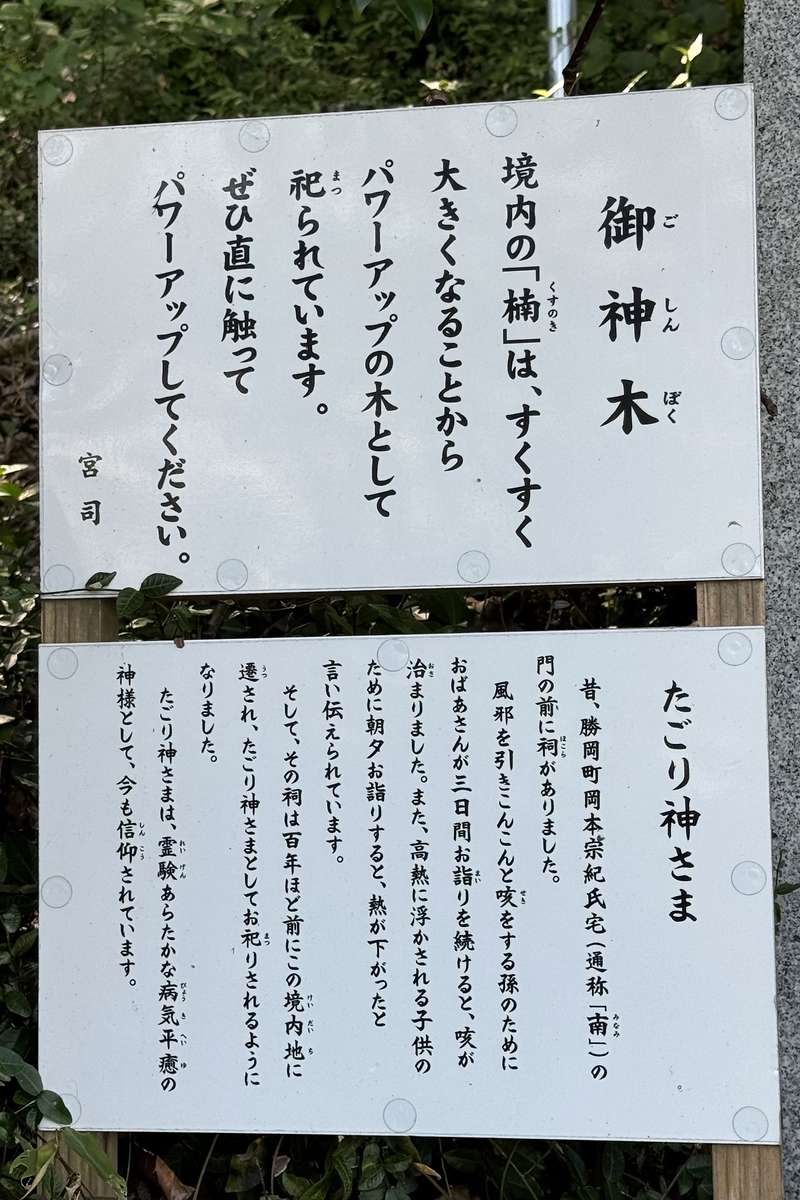 御神木
ごしんぼく
境内の「楠」は、すくすく
くすのき
大きくなることから
パワーアップの木として
祀られています。
まつ
ぜひ直に触って
パワーアップしてください。
宮司
たごり神さま
昔、勝岡町岡本宗紀氏宅(通称「南」)の
みなみ
門の前に祠がありました。
ほこら
風邪を引きこんこんと咳をする孫のために
せき
おばあさんが三日間お詣りを続けると、咳が
まい
治まりました。また、高熱に浮かされる子供の
おさ
ために朝夕お詣りすると、熱が下がったと
言い伝えられています。
そして、その祠は百年ほど前にこの境内地に
けいだいち
遷され、たごり神さまとしてお祀りされるように
うつ
まつ
なりました。
たごり神さまは、霊験あらたかな病気平癒の
れいげん
びょうきへいゆ
神様として、今も信仰されています。
しんこう